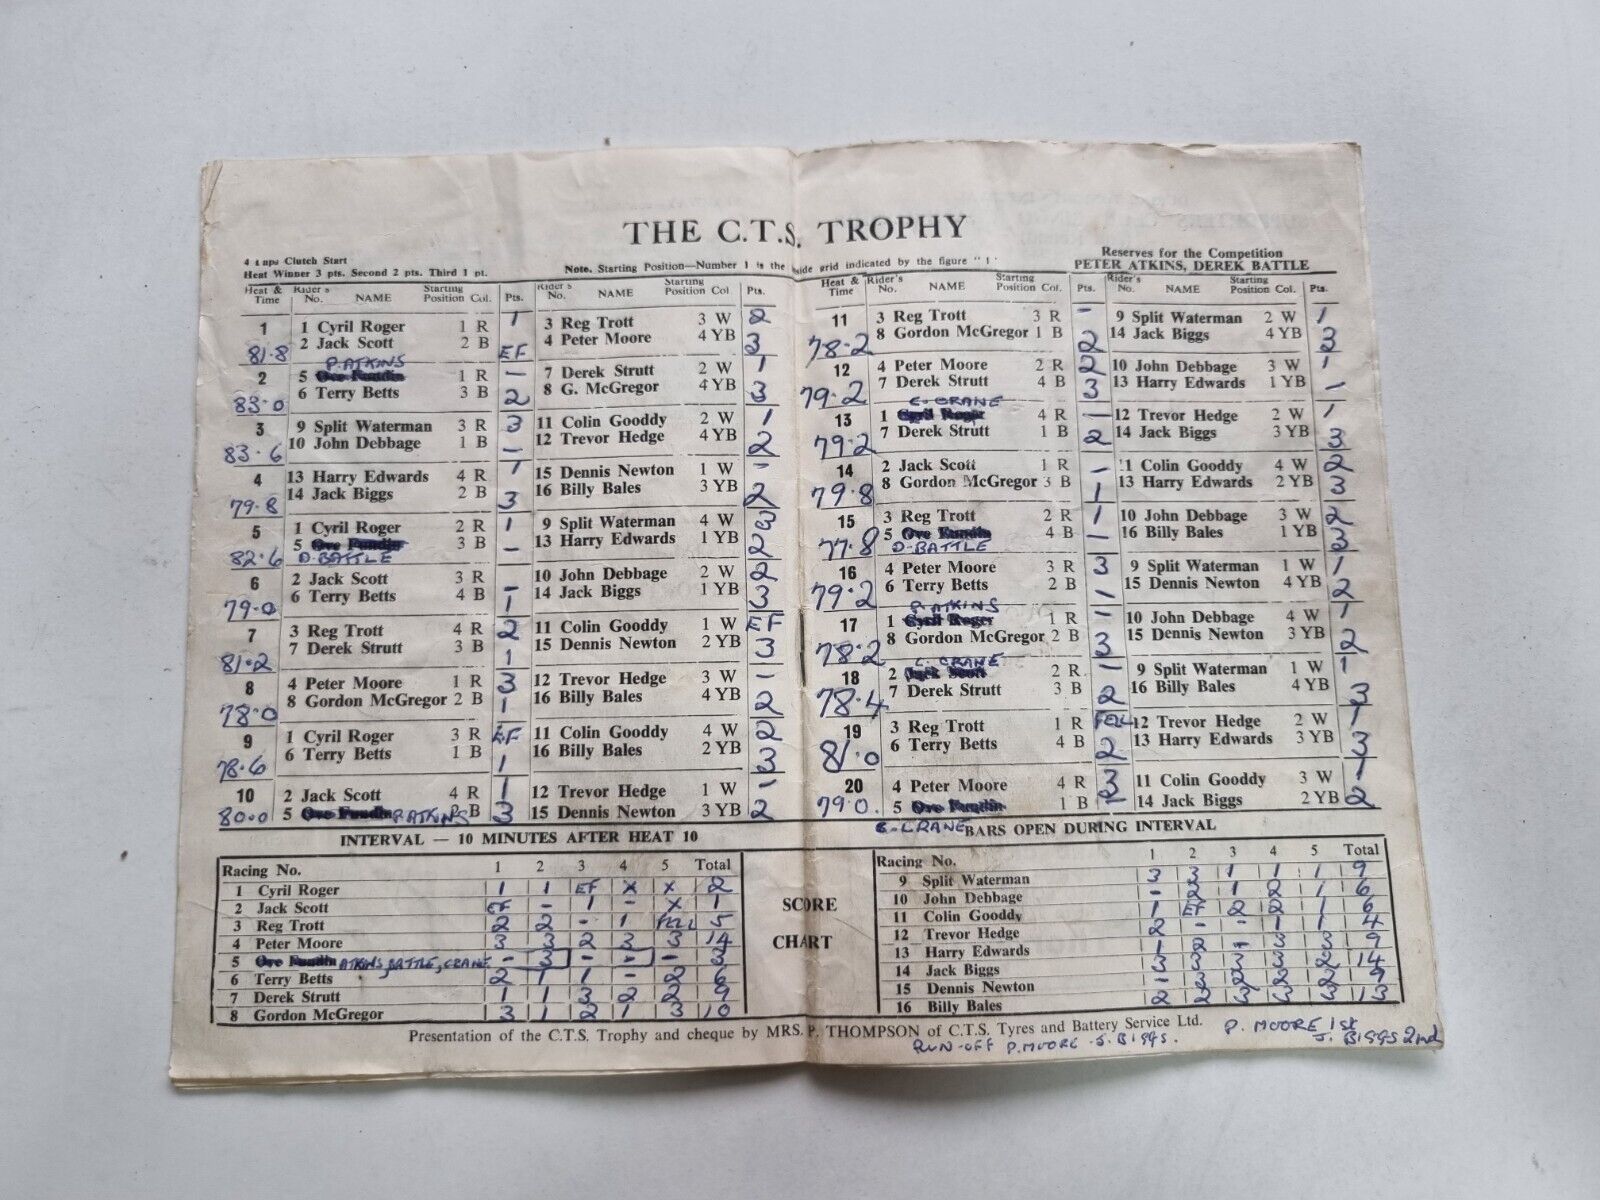 THE C.T.S. TROPHY
4 Laps Clutch Start
Heat Winner 3 pts. Second 2 pts. Third 1 pt.
Note. Starting Position—Number 1 is the inside grid indicated by the figure "1"
Reserves for the Competition
PETER ATKINS, DEREK BATTLE
Heat & Time Rider's No. NAME Starting Position Col. Pts. Rider's No. NAME Starting Position Col. Pts.
1 1 Cyril Roger 1 R 1 3 Reg Trott 3 W 2
81.8 2 Jack Scott 2 B EF 4 Peter Moore 4 YB 3
P. ATKINS
2 5 Ove Fundin 1 R - 7 Derek Strutt 2 W 1
83.0 6 Terry Betts 3 B 2 8 G. McGregor 4 YB 3
3 9 Split Waterman 3 R 3 11 Colin Gooddy 2 W 1
83.6 10 John Debbage 1 B - 12 Trevor Hedge 4 YB 2
4 13 Harry Edwards 4 R 1 15 Dennis Newton 1 W -
79.8 14 Jack Biggs 2 B 3 16 Billy Bales 3 YB 2
5 1 Cyril Roger 2 R 1 9 Split Waterman 4 W 3
82.6 5 Ove Fundin 3 B - 13 Harry Edwards 1 YB 2
D. BATTLE
6 2 Jack Scott 3 R - 10 John Debbage 2 W 2
79.0 6 Terry Betts 4 B 1 14 Jack Biggs 1 YB 3
7 3 Reg Trott 4 R 2 11 Colin Gooddy 1 W EF
81.2 7 Derek Strutt 3 B 1 15 Dennis Newton 2 YB 3
8 4 Peter Moore 1 R 3 12 Trevor Hedge 3 W -
78.0 8 Gordon McGregor 2 B 1 16 Billy Bales 4 YB 2
9 1 Cyril Roger 3 R EF 11 Colin Gooddy 4 W 2
78.6 6 Terry Betts 1 B 1 16 Billy Bales 2 YB 3
10 2 Jack Scott 4 R 1 12 Trevor Hedge 1 W -
80.0 5 Ove Fundin P. ATKINS 2 B 3 15 Dennis Newton 3 YB 2
INTERVAL — 10 MINUTES AFTER HEAT 10
Heat & Time Rider's No. NAME Starting Position Col. Pts. Rider's No. NAME Starting Position Col. Pts.
11 3 Reg Trott 3 R - 9 Split Waterman 2 W 1
78.2 8 Gordon McGregor 1 B 2 14 Jack Biggs 4 YB 3
12 4 Peter Moore 2 R 2 10 John Debbage 3 W 1
79.2 7 Derek Strutt 4 B 3 13 Harry Edwards 1 YB -
C. CRANE
13 1 Cyril Roger 4 R - 12 Trevor Hedge 2 W 1
79.2 7 Derek Strutt 1 B 2 14 Jack Biggs 3 YB 3
14 2 Jack Scott 1 R - 11 Colin Gooddy 4 W 2
79.8 8 Gordon McGregor 3 B 1 13 Harry Edwards 2 YB 3
15 3 Reg Trott 2 R 1 10 John Debbage 3 W 2
77.8 5 Ove Fundin 4 B - 16 Billy Bales 1 YB 3
D. BATTLE
16 4 Peter Moore 3 R 3 9 Split Waterman 1 W 1
79.2 6 Terry Betts 2 B - 15 Dennis Newton 4 YB 2
P. ATKINS
17 1 Cyril Roger 1 R - 10 John Debbage 4 W 1
78.2 8 Gordon McGregor 2 B 3 15 Dennis Newton 3 YB 2
C. CRANE
18 2 Jack Scott 2 R - 9 Split Waterman 1 W 1
78.4 7 Derek Strutt 3 B 2 16 Billy Bales 4 YB 3
19 3 Reg Trott 1 R FELL 12 Trevor Hedge 2 W 1
81.0 6 Terry Betts 4 B 2 13 Harry Edwards 3 YB 3
20 4 Peter Moore 4 R 3 11 Colin Gooddy 3 W 1
79.0. 5 Ove Fundin 1 B - 14 Jack Biggs 2 YB 2
C. CRANE BARS OPEN DURING INTERVAL
Racing No. 1 2 3 4 5 Total
1 Cyril Roger 1 1 EF X X 2
2 Jack Scott EF - 1 - X 1
3 Reg Trott 2 2 - 1 FELL 5
4 Peter Moore 3 3 2 3 3 14
5 Ove Fundin ATKINS, BATTLE, CRANE - - 3 - - 3
6 Terry Betts 2 1 1 - 2 6
7 Derek Strutt 1 1 3 2 2 9
8 Gordon McGregor 3 1 2 1 3 10
SCORE
CHART
Racing No. 1 2 3 4 5 Total
9 Split Waterman 3 3 1 1 1 9
10 John Debbage - 2 1 2 1 6
11 Colin Gooddy 1 EF 2 2 1 6
12 Trevor Hedge 2 - - 1 1 4
13 Harry Edwards 1 2 - 3 3 9
14 Jack Biggs 3 3 3 3 2 14
15 Dennis Newton - 3 2 2 2 9
16 Billy Bales 2 2 3 3 3 13
Presentation of the C.T.S. Trophy and cheque by MRS. P. THOMPSON of C.T.S. Tyres and Battery Service Ltd.
P. MOORE 1st
RUN-OFF P. MOORE - J. BIGGS.
J. BIGGS 2nd